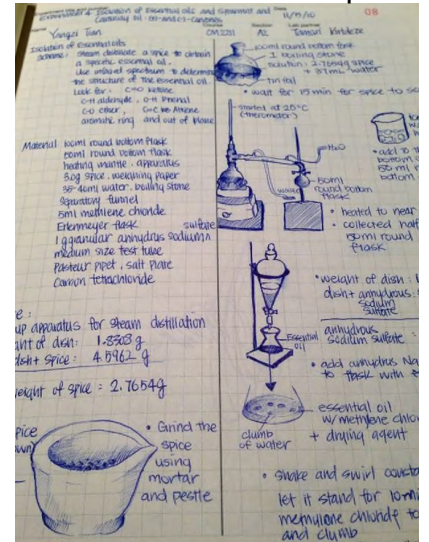 Experiment 4: Isolation of Essential oils
08
Yangzi Tian
CM2211
A2
Isolation of Essential oils
steam distillate a spice to obtain
a specific essential oil.
Use infrared spectrum to determine
the structure of the essential oil.
Look for: C=O ketone
C-H aldehyde, O-H Phenol
C-O ether, C=C Alkene
aromatic ring and out of plane
Material 100ml round bottom flask
50ml round bottom flask
heating mantle, apparatus
3.0g spice, weighing paper
35-40ml water, boiling stone
separatory funnel
5ml methlene chloride
Erlenmeyer flask
1 g granular anhydrus sodium sulfate
medium size test tube
Pasteur pipet, salt plate
Carbon tetrachloride
up apparatus for steam distillation
dish: 1.8308 g
dish + spice: 4.5962 g
weight of spice = 2.7654g
• Grind the
spice
using
mortar
and pestle
100ml round bottom flask
1 boiling stone
solution: 2.7654g spice
+ 37mL water
tin foil
• wait for 15 min for spice to
started at 25°C
(thermometer)
H₂O
• add to
bottom
50 ml
bottom
50ml
round bottom
flask
• heated to near
• collected half
50ml round
flask
• weight of dish:
dish + anhydrous
sodium
sulfate
anhydrous
sodium sulfate:
Essential
oil
• add anhydrus Na
to flask with
essential oil
w/methylene chlo
+ drying agent
clumb
of water
• shake and swirl
let it stand for 10
methylene chloride to
and clumb